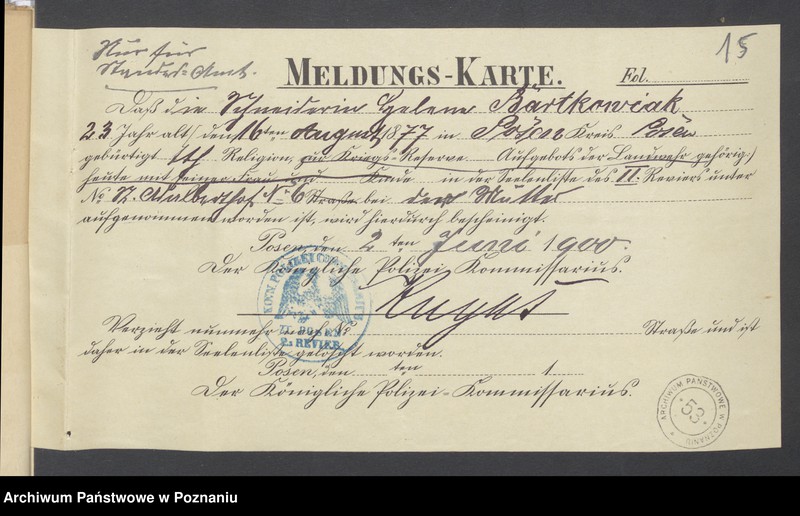 Nur für
Standes-Amt.
15
MELDUNGS-KARTE.
Fol.
Daß die Schneiderin Helene Bartkowiak
23 Jahr alt, den 16ten August 1877 in Posen Kreis Posen
gebürtigt kth Religion, zur Kriegs-Reserve Aufgebots der Landwehr gehörig,
heute mit seiner Frau und Kinde in der Seelenliste des II. Reviers unter
No Nr 6 Straße bei der Mutter
aufgenommen worden ist, wird hierdurch bescheinigt.
Posen, den 2 ten Juni 1900.
Der Königliche Polizei-Kommissarius.
II. POSEN
2. REVIER
Verzieht nunmehr nach No Straße und ist
daher in der Seelenliste gelöscht worden.
Posen, den ten 1
Der Königliche Polizei-Kommissarius.
ARCHIWUM PAŃSTWOWE W POZNANIU
53
Archiwum Państwowe w Poznaniu